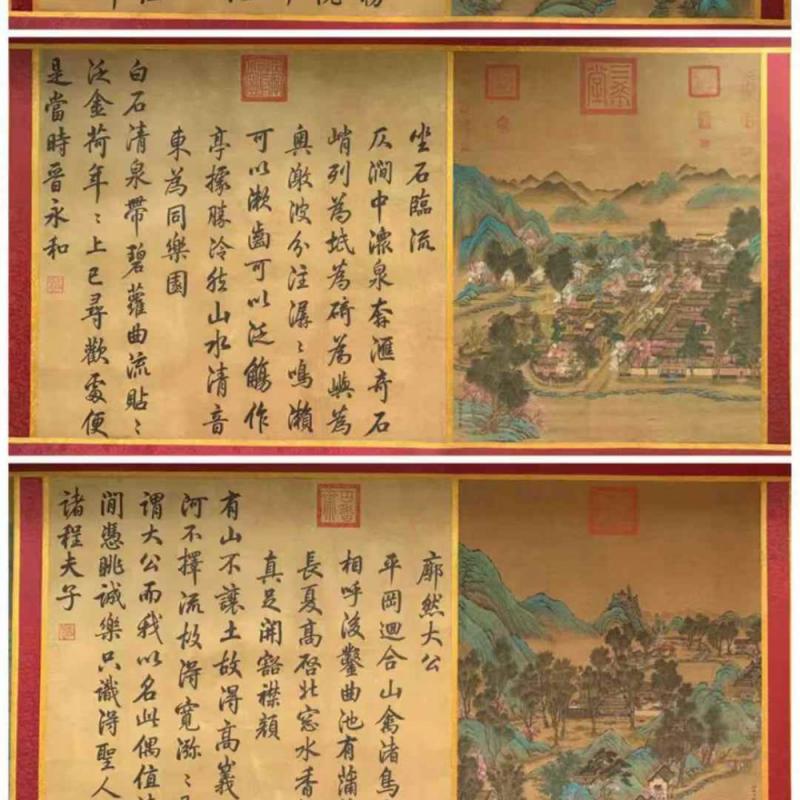 坐石臨流
仄澗中瀠泉奔滙奇石
峭列為坻為碕為嶼為
奧激波分注潺〻鳴瀨
可以漱齒可以泛觴作
亭據勝泠然山水清音
東為同樂園
白石清泉帶碧蘿曲流貼〻
泛金荷年〻上巳尋歡處便
是當時晉永和
三希堂
廓然大公
平岡迴合山禽渚鳥
相呼後鑿曲池有蒲
長夏高啓北窓水香
真足開豁襟顔
有山不讓土故得高峩
河不擇流故得寬瀰〻
謂大公而我以名此偶值
閒憑眺誠樂只識得聖人
諸程夫子